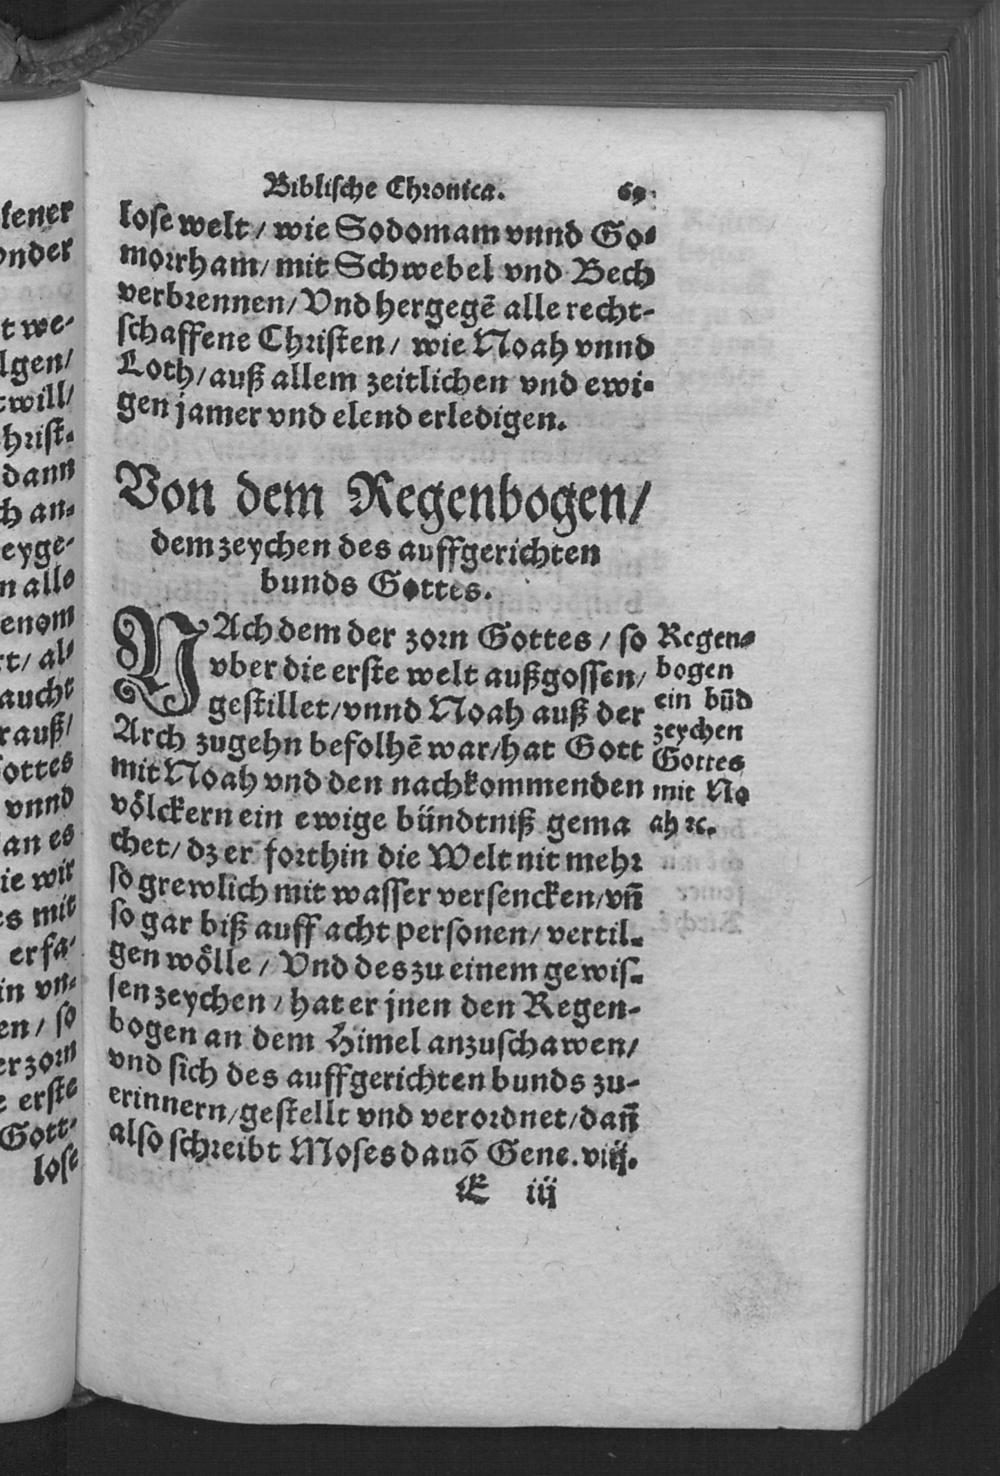 Biblische Chronica. 69.
lose welt / wie Sodomam vnnd Go-
morrham / mit Schwebel vnd Bech
verbrennen / Vnd hergegẽ alle recht-
schaffene Christen / wie Noah vnnd
Loth / auß allem zeitlichen vnd ewi-
gen jamer vnd elend erledigen.
Von dem Regenbogen /
dem zeychen des auffgerichten
bunds Gottes.
NAch dem der zorn Gottes / so
vber die erste welt außgossen /
gestillet / vnnd Noah auß der
Arch zugehn befolhẽ war / hat Gott
mit Noah vnd den nachkommenden
völckern ein ewige bündtniß gema
chet / dz er forthin die Welt nit mehr
so grewlich mit wasser versencken / vñ
so gar biß auff acht personen / vertil-
gen wölle / Vnd des zu einem gewis-
sen zeychen / hat er jnen den Regen-
bogen an dem Himel anzuschawen /
vnd sich des auffgerichten bunds zu-
erinnern / gestellt vnd verordnet / dañ
also schreibt Moses dauõ Gene. viij.
E iij
Regen-
bogen
ein bũd
zeychen
Gottes
mit No
ah ꝛc.
fener
onder
t we-
lgen /
will /
hrist-
dann
ch an-
eyge-
n alls
enom
rt / al-
aucht
rauß /
ottes
vnnd
an es
ie wir
es mit
erfa-
in vn-
en / so
er zorn
e erste
Gott-
lose